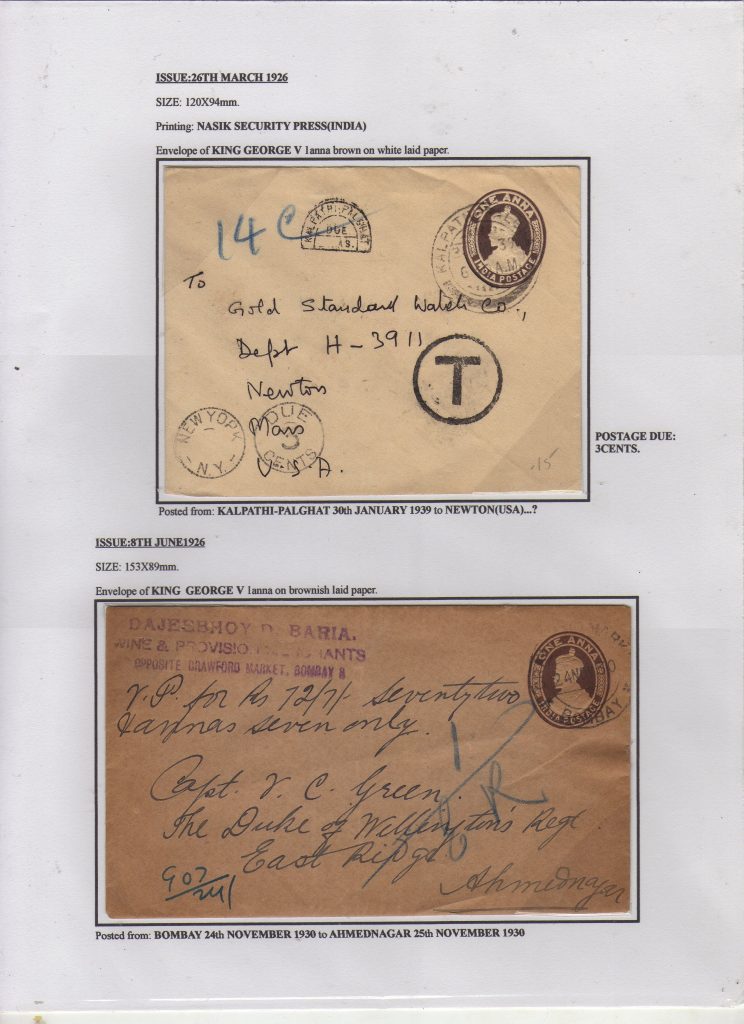 ISSUE:26TH MARCH 1926
SIZE: 120X94mm.
Printing: NASIK SECURITY PRESS(INDIA)
Envelope of KING GEORGE V 1anna brown on white laid paper.
14 C
KALPATHI-PALGHAT
DUE
AS.
ONE ANNA
INDIA POSTAGE
KALPAT
A.M.
To
Gold Standard Watch Co.,
Dept H-3911
Newton
Mass
U.S.A.
T
NEW YORK
N.Y.
DUE
3
CENTS
.15
POSTAGE DUE:
3CENTS.
Posted from: KALPATHI-PALGHAT 30th JANUARY 1939 to NEWTON(USA)...?
ISSUE:8TH JUNE1926
SIZE: 153X89mm.
Envelope of KING GEORGE V 1anna on brownish laid paper.
DAJEEBHOY D. BARIA.
WINE & PROVISIO ANTS
OPPOSITE CRAWFORD MARKET, BOMBAY 8
ONE ANNA
INDIA POSTAGE
BAY
V.P. for Rs 72/7/- Seventytwo
& annas seven only.
Capt. V. C. Green,
The Duke of Wellington's Regt
East Ridge
Ahmednagar
R
902/241
Posted from: BOMBAY 24th NOVEMBER 1930 to AHMEDNAGAR 25th NOVEMBER 1930